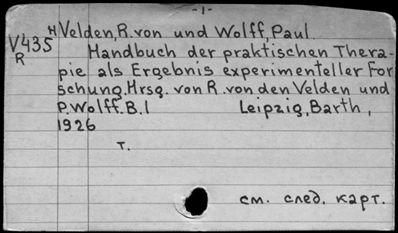 -1-
V435 R
H Velden, R. von und Wolff, Paul.
Handbuch der praktischen Thera-
pie als Ergebnis experimenteller For
schung. Hrsg. von R. von den Velden und
P. Wolff. B. 1 Leipzig, Barth,
1926
т.
см. след. карт.